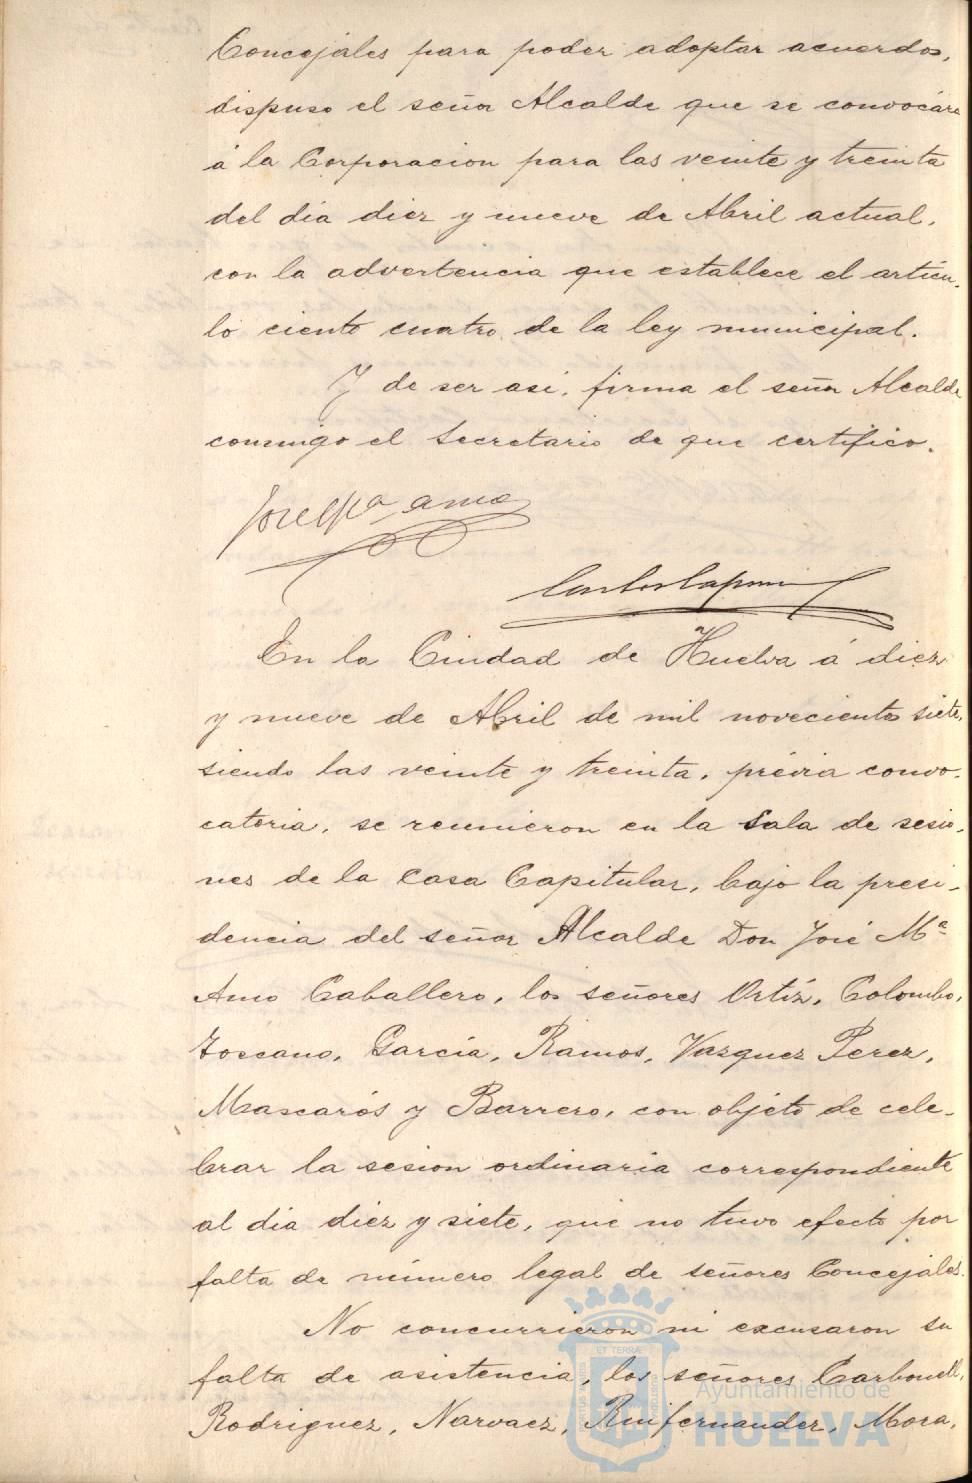 Concejales para poder adoptar acuerdos,
dispuso el señor Alcalde que se convocára
á la Corporacion para las veinte y treinta
del dia diez y nueve de Abril actual,
con la advertencia que establece el artícu-
lo ciento cuatro de la ley municipal.
Y de ser asi, firma el señor Alcalde
conmigo el Secretario de que certifico.
José Mª Amo
En la Ciudad de Huelva á diez
y nueve de Abril de mil novecientos siete,
siendo las veinte y treinta, prévia convo-
catoria, se reunieron en la Sala de sesio-
nes de la Casa Capitular, bajo la presi-
dencia del señor Alcalde Don José Mª
Amo Caballero, los señores Ortíz, Colombo,
Toscano, García, Ramos, Vazquez Perez,
Mascarós y Barrero, con objeto de cele-
brar la sesion ordinaria correspondiente
al dia diez y siete, que no tuvo efecto por
falta de número legal de señores Concejales.
No concurrieron ni excusaron su
falta de asistencia, los señores Carbonell,
Rodriguez, Narvaez, Ruifernandez, Mora,
Ayuntamiento de
HUELVA